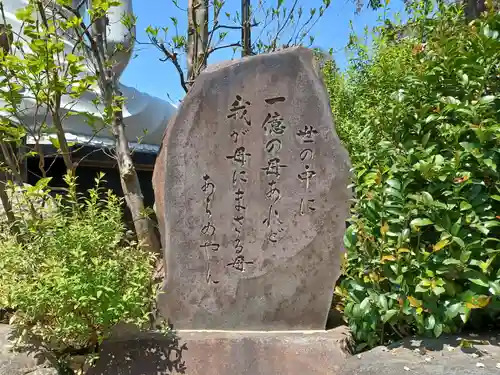 世の中に
一億の母あれど
我が母にまさる母
あらめやも